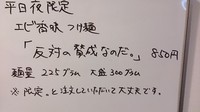 平日夜限定
エビ香味 つけ麺
「反対の賛成なのだ。」 850円
麺量 225グラム 大盛 300グラム
※「限定」と注文していただいて大丈夫です。